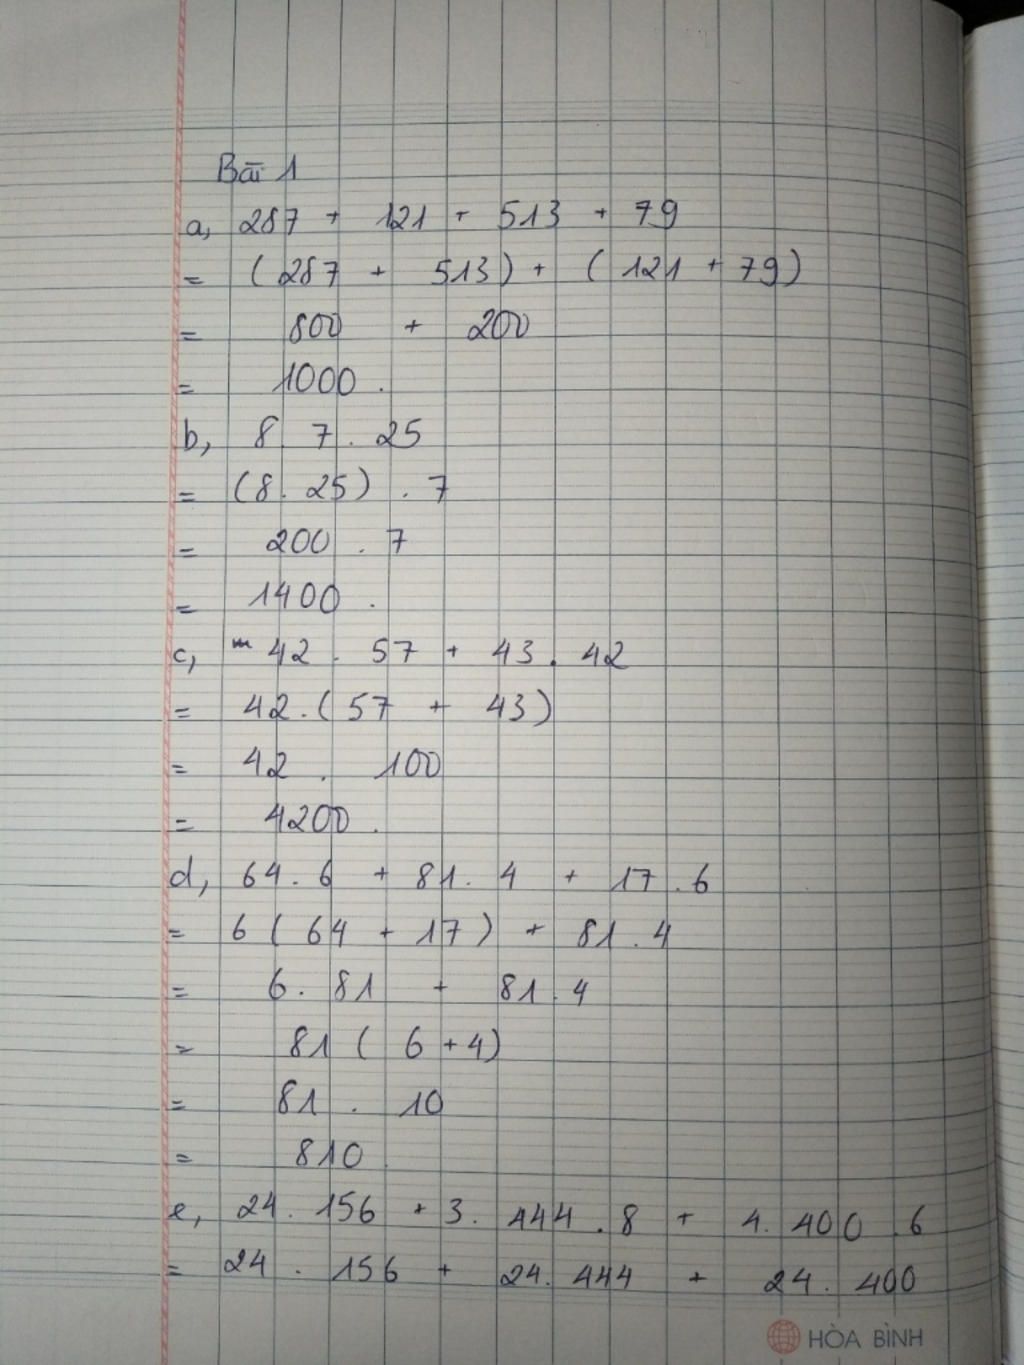 Bài 1
a, 287 + 121 + 513 + 79
= (287 + 513) + (121 + 79)
= 800 + 200
= 1000.
b, 8. 7. 25
= (8. 25) . 7
= 200 . 7
= 1400.
c, 42. 57 + 43. 42
= 42.(57 + 43)
= 42 . 100
= 4200.
d, 64. 6 + 81. 4 + 17. 6
= 6 ( 64 + 17) + 81. 4
= 6. 81 + 81. 4
= 81 ( 6 + 4)
= 81 . 10
= 810
e, 24. 156 + 3. 444. 8 + 4. 400. 6
= 24 . 156 + 24. 444 + 24. 400
HÒA BÌNH